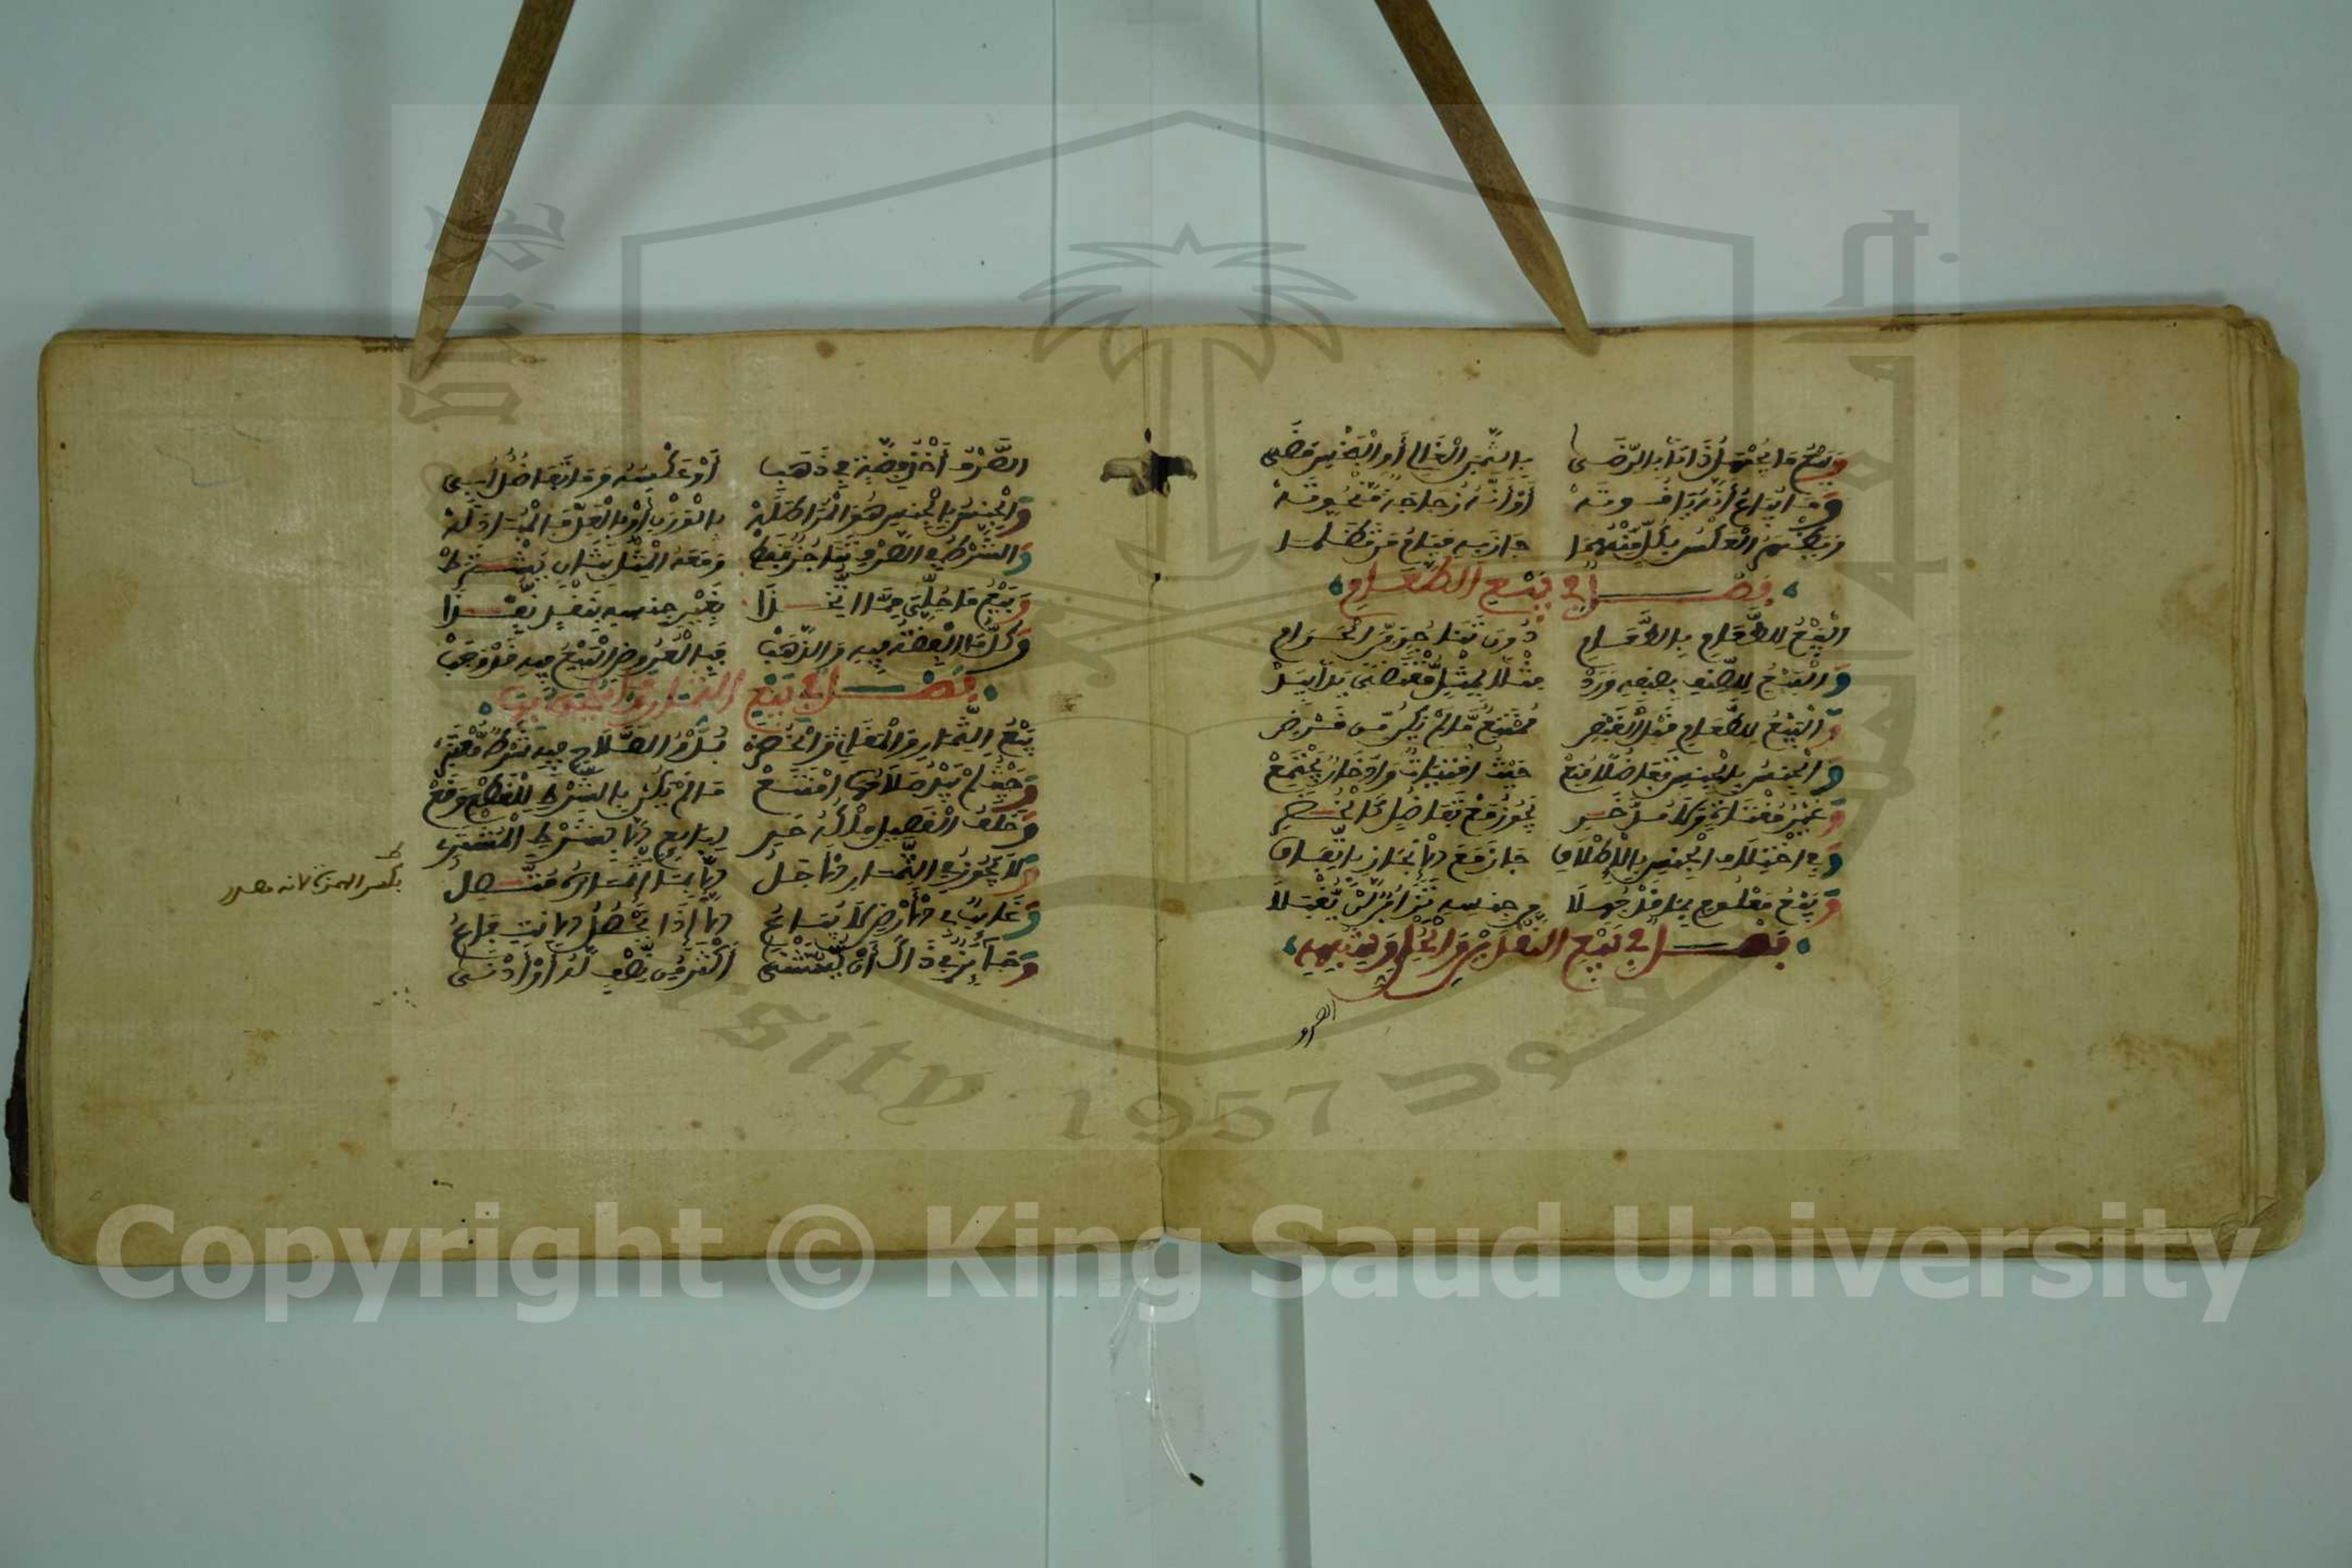 وَبَيْعُ مَا يُجْهَلُ ذَاتًا بِالرِّضَى بِالثَّمَنِ الْغَالِي أَوِ الْبَخْسِ مَضَى
وَمَا يُبَاعُ أَنَّهُ يَاقُوتَهْ أَوْ أَنَّهُ زُجَاجَةٌ مَنْحُوتَهْ
وَيَظْهَرُ الْعَكْسُ بِكُلٍّ مِنْهُمَا جَازَ بِهِ قِيَامُ مَنْ تَظَلَّمَا
فصل في بيع الطعام
الْبَيْعُ لِلطَّعَامِ بِالطَّعَامِ دُونَ تَنَاجُزٍ مِنَ الْحَرَامِ
وَالْبَيْعُ لِلصِّنْفِ بِصِنْفِهِ وَرَدْ مِثْلًا بِمِثْلٍ مُقْتَضًى يَدًا بِيَدْ
وَالْبَيْعُ لِلطَّعَامِ قَبْلَ الْقَبْضِ مُمْتَنِعٌ مَا لَمْ يَكُنْ مِنْ قَرْضِ
وَالْجِنْسُ بِالْجِنْسِ تَفَاضُلًا مُنِعْ حَيْثُ اقْتِيَاتٌ وَادِّخَارٌ يَجْتَمِعْ
وَغَيْرُ مُقْتَاتٍ وَلَا مُدَّخَرِ يَجُوزُ مَعْ تَفَاضُلٍ كَالْخُضَرِ
وَفِي اخْتِلَافِ الْجِنْسِ بِالْإِطْلَاقِ جَازَ مَعَ الْإِنْجَازِ بِاتِّفَاقِ
وَبَيْعُ مَعْلُومٍ بِمَا قَدْ جُهِلَا مِنْ جِنْسِهِ تَزَابُنٌ لَنْ يُقْبَلَا
فصل في بيع النقدين والحلي وشبهه
الصرف
الصَّرْفُ أَخْذُ فِضَّةٍ فِي ذَهَبِ أَوْ عَكْسُهُ وَمَا تَفَاضُلٌ أُبِي
وَالْجِنْسُ بِالْجِنْسِ هُوَ الْمُرَاطَلَهْ بِالْوَزْنِ أَوْ بِالْعَدِّ فَالْمُبَادَلَهْ
وَالشَّرْطُ فِي الصَّرْفِ تَنَاجُزٌ فَقَطْ وَمَعَهُ الْمِثْلُ بِثَانٍ يُشْتَرَطْ
وَبَيْعُ مَا حُلِّيَ مِمَّا اتُّخِذَا بِغَيْرِ جِنْسِهِ بِنَقْدٍ نَفَذَا
وَكُلُّ مَا الْفِضَّةُ فِيهِ وَالذَّهَبْ فَبِالْعُرُوضِ الْبَيْعُ فِيهِ قَدْ وَجَبْ
فصل في بيع الثمار وما يلحق بها
بَيْعُ الثِّمَارِ وَالْمَقَاثِي وَالْخُضَرْ بُدُوُّ الصَّلَاحِ فِيهِ شَرْطٌ مُعْتَبَرْ
وَحَيْثُ لَمْ يَبْدُ صَلَاحُهَا امْتَنَعْ مَا لَمْ يَكُنْ بِالشَّرْطِ لِلْقَطْعِ وَقَعْ
وَخَلَفُ الْقَصِيلِ مِلْكُهُ حَرِي لِبَائِعٍ إِلَّا بِشَرْطِ الْمُشْتَرِي
وَلَا يَجُوزُ فِي الثِّمَارِ الْأَجَلُ إِلَّا بِمَا إِثْمَارُهُ مُتَّصِلُ
بكسر الهمزة لانه مصدر
وَغَائِبٌ فِي الْأَرْضِ لَا يُبَاعُ إِلَّا إِذَا يَحْصُلُ الِانْتِفَاعُ
وَجَائِزٌ فِي ذَاكَ أَنْ يُسْتَثْنَى أَكْثَرُ مِنْ نِصْفٍ لَهُ أَوْ أَدْنَى
rsity 1957
Copyright © King Saud University